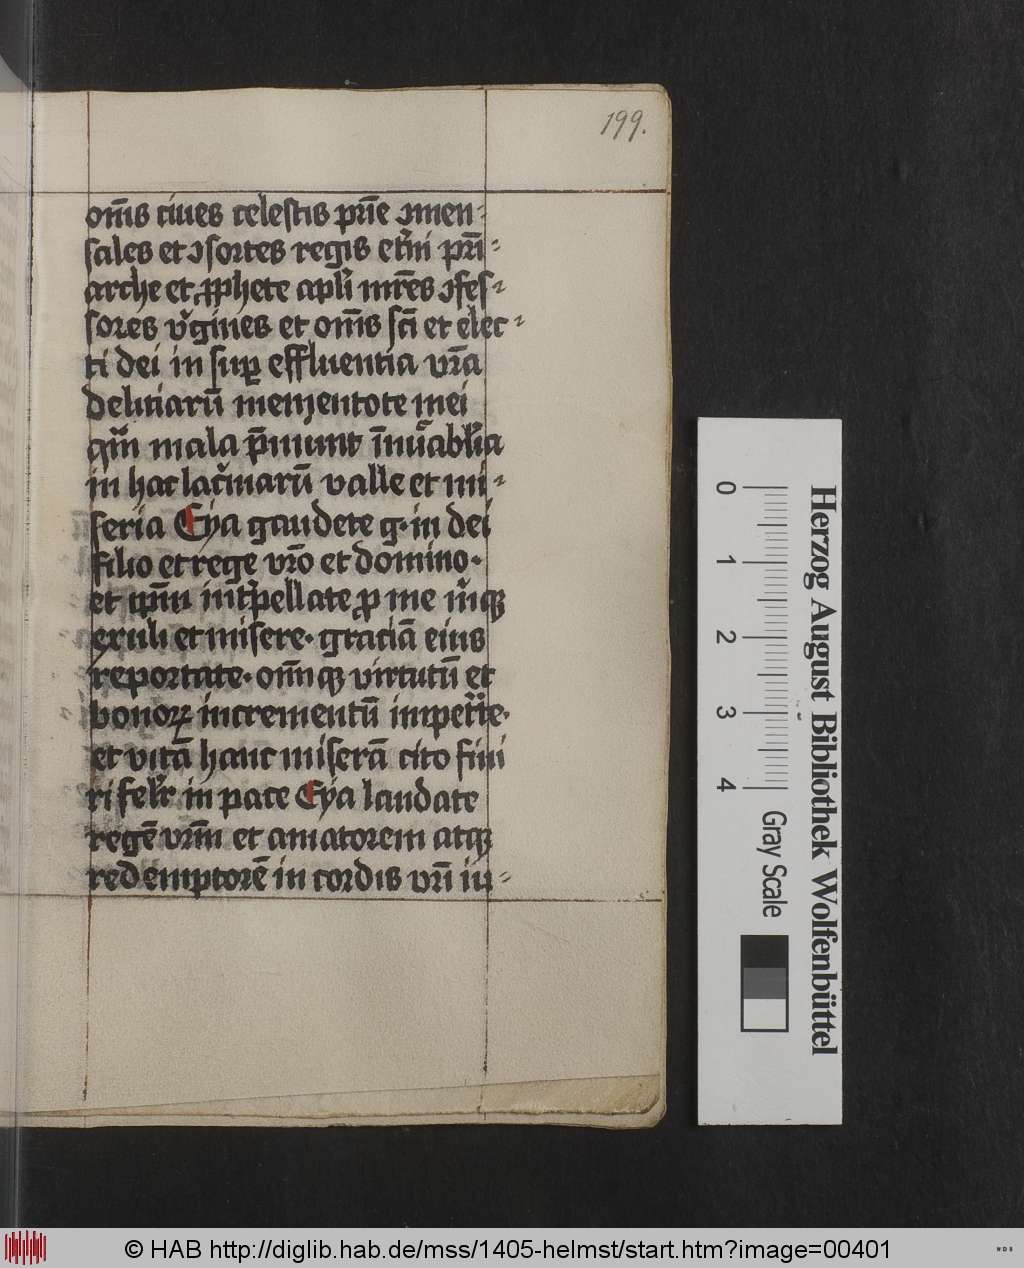 199.
om̄s ciues celestis pr̄ie ɔmen⸗
sales et ɔsortes regis et̓ni pr̄i⸗
arche et ꝓphete apl̓i mr̄es ɔfes⸗
sores v̓gines et om̄s sc̄i et elec⸗
ti dei in suꝑ effluentia vr̄a
delitiarū mementote mei
qm̄ mala p̄munt
in hac lac̓marū valle et mi⸗
seria Eya gaudete g· in dei
filio et rege vr̄o et domino·
et int̓pellate ꝓ me
exuli et misero· gratiā eius
reportate· virtutū et
bonoꝝ incrementū impet̓te·
et vitā hanc miserā cito fini
ri fel̓r in pace Eya laudate
regē vrm̄ et amatorem atqꝫ
redemptorē in cordis vr̄i iu⸗
0
1
2
3
4
Gray Scale
Herzog August Bibliothek Wolfenbüttel
© HAB http://diglib.hab.de/mss/1405-helmst/start.htm?image=00401